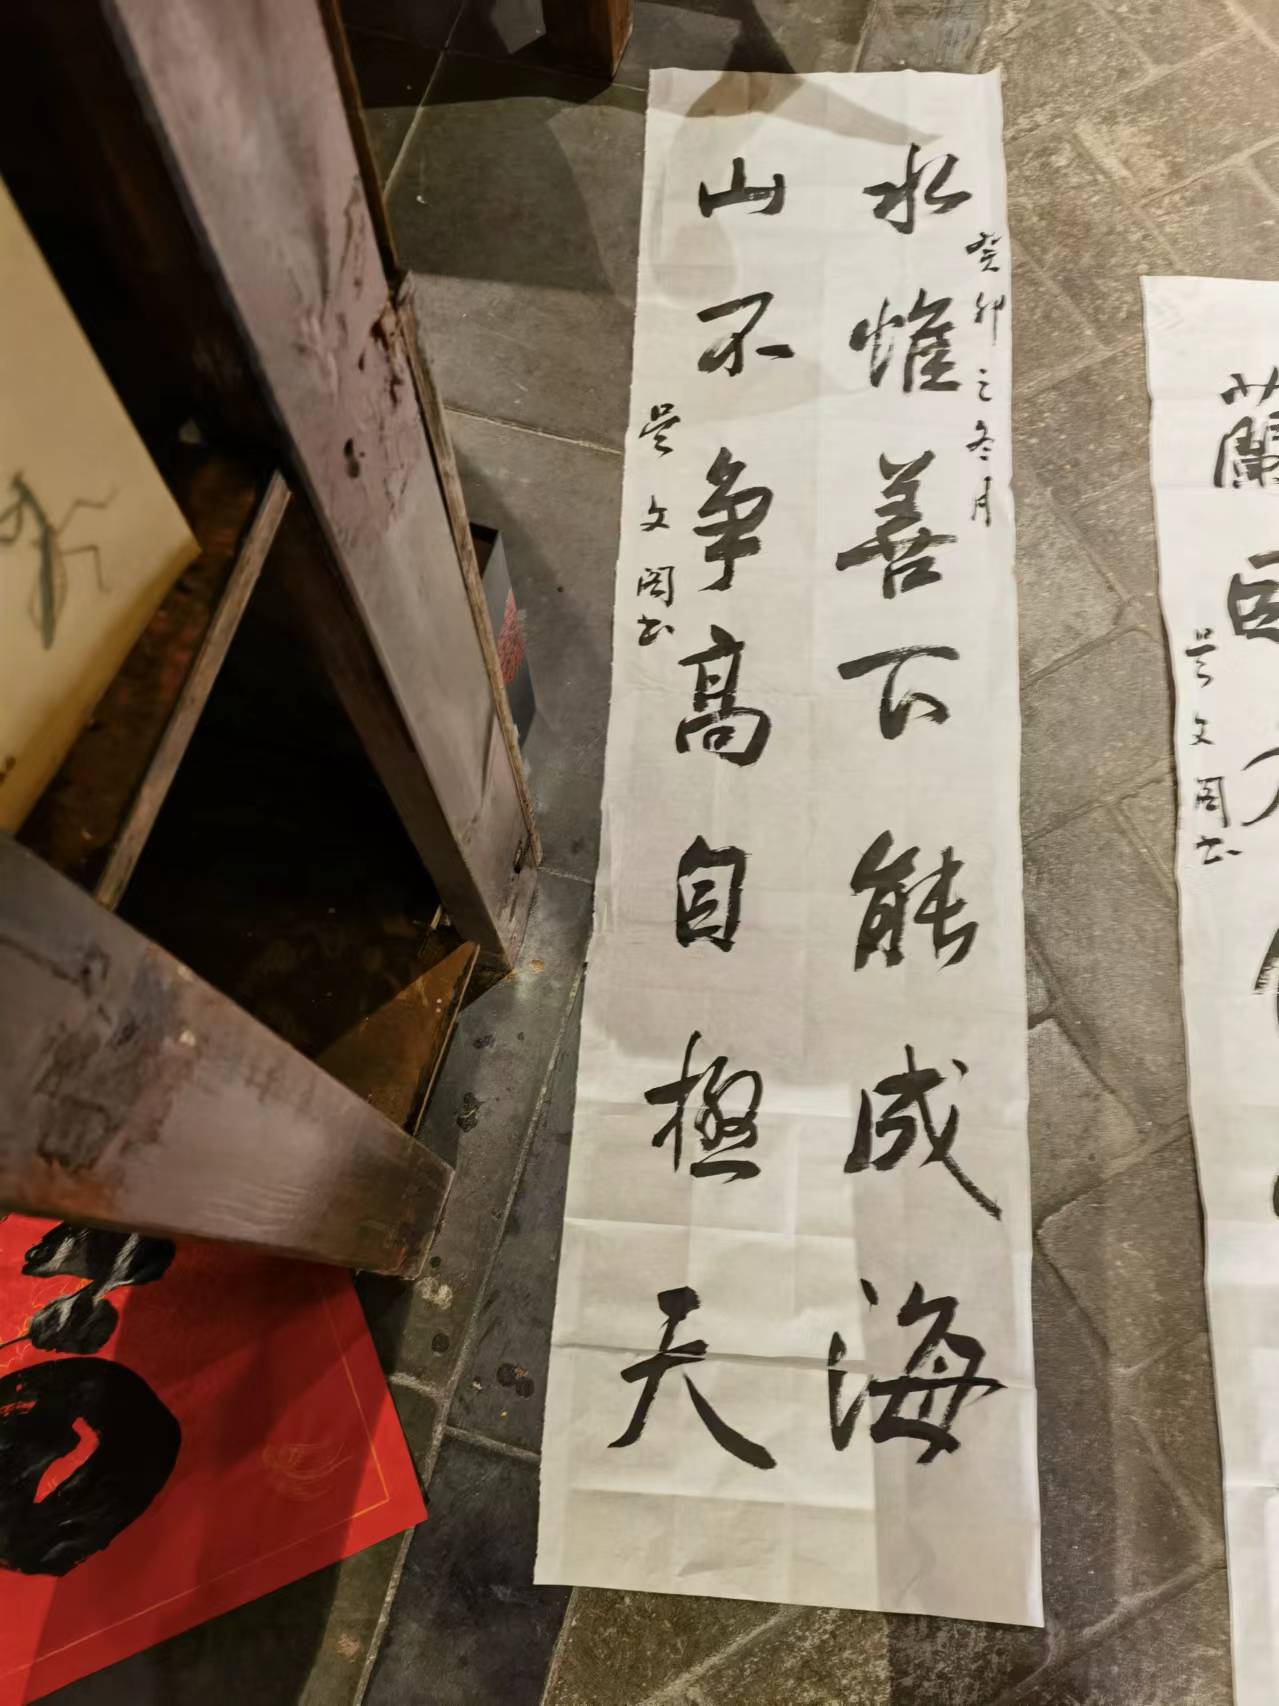 水惟善下能成海
癸卯之冬月
山不争高自極天
吴文阁书
蘭
吴文阁书